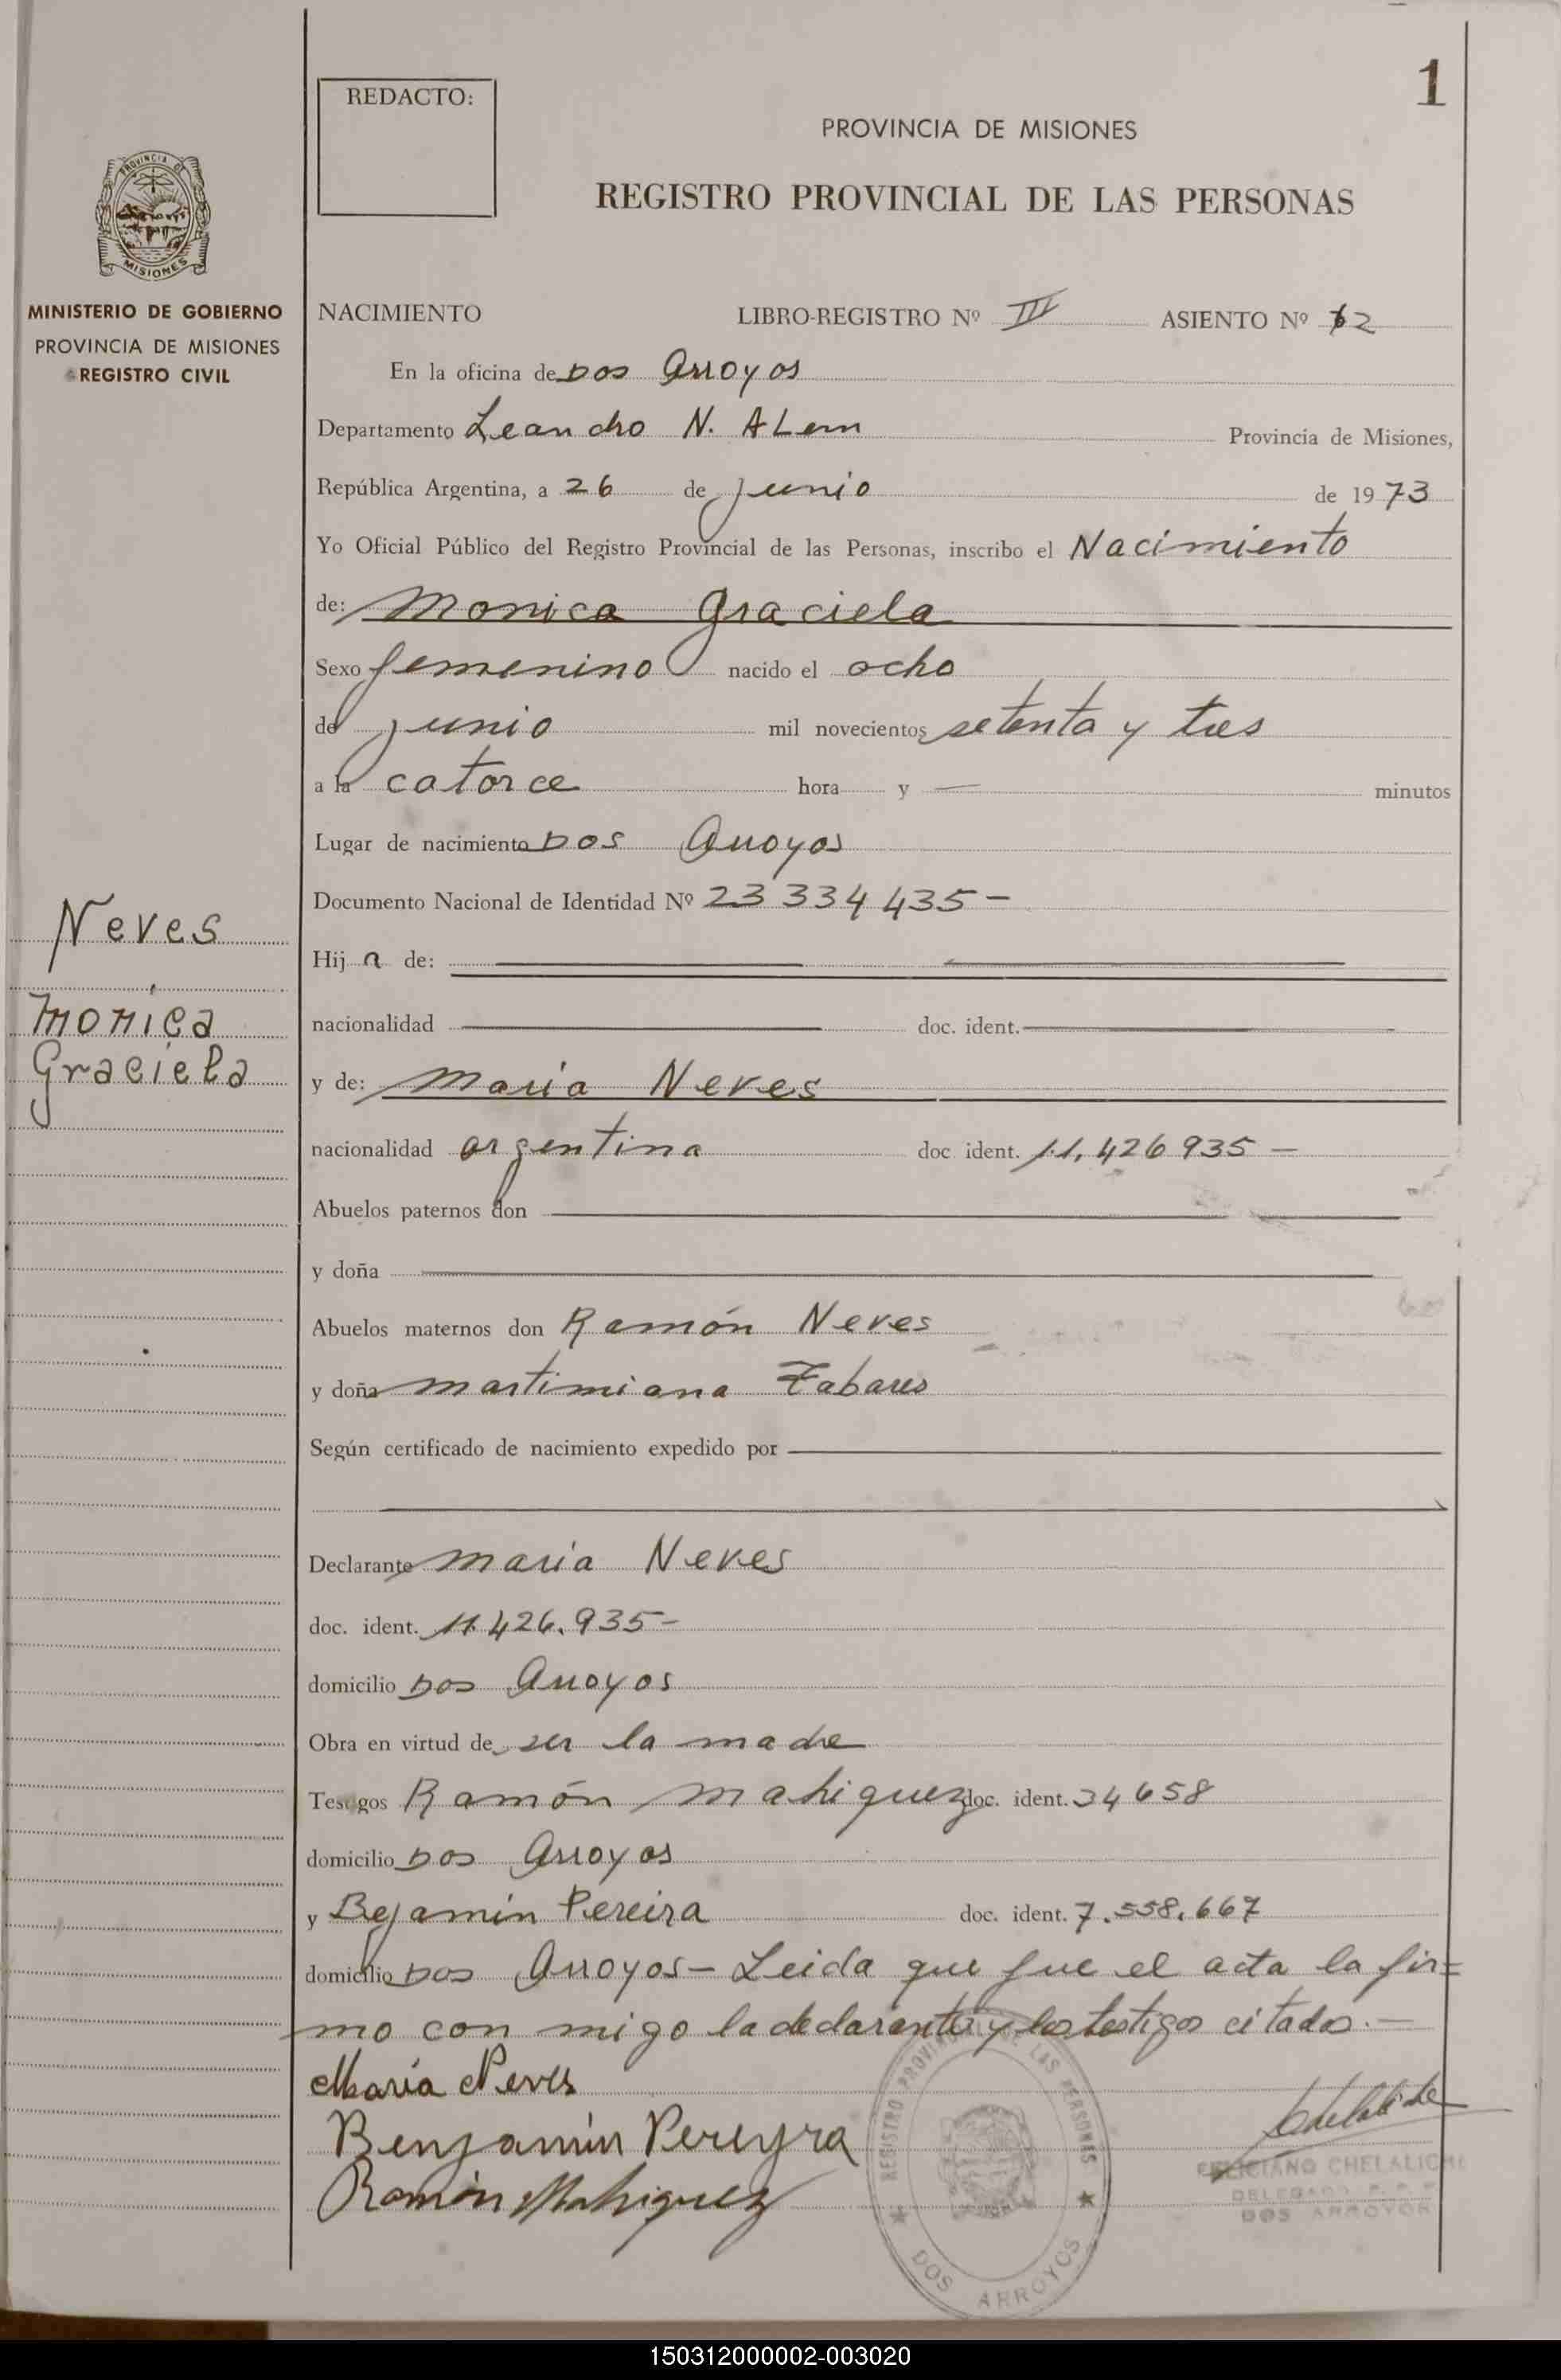 1
REDACTO:
PROVINCIA DE MISIONES
REGISTRO PROVINCIAL DE LAS PERSONAS
PROVINCIA DE
MISIONES
MINISTERIO DE GOBIERNO
PROVINCIA DE MISIONES
REGISTRO CIVIL
NACIMIENTO LIBRO-REGISTRO Nº III ASIENTO Nº 62
En la oficina de Dos Arroyos
Departamento Leandro N. ALem Provincia de Misiones,
República Argentina, a 26 de junio de 1973
Yo Oficial Público del Registro Provincial de las Personas, inscribo el Nacimiento
de: Monica Graciela
Sexo femenino nacido el ocho
de junio mil novecientos setenta y tres
a la catorce hora y — minutos
Lugar de nacimiento Dos Arroyos
Documento Nacional de Identidad Nº 23 334 435 -
Neves
Monica
Graciela
Hija de:
nacionalidad doc. ident.
y de: Maria Neves
nacionalidad argentina doc ident. 11,426 935 —
Abuelos paternos don
y doña
Abuelos maternos don Ramón Neves
y doña Martimiana Tabares
Según certificado de nacimiento expedido por
Declarante Maria Neves
doc. ident. 11.426.935-
domicilio Dos Arroyos
Obra en virtud de ser la madre
Testigos Ramón Mahiquez doc. ident. 34 658
domicilio Dos Arroyos
y Bejamin Pereira doc. ident. 7.558.667
domicilio Dos Arroyos - Leida que fue el acta la fir=
mo con migo la declarante y los testigos citados. —
María Neves
Benjamin Pereyra
Ramón Mahiquez
REGISTRO PROVINCIAL DE LAS PERSONAS
DOS ARROYOS
FELICIANO CHELALICHE
DELEGADO R. P. P.
DOS ARROYOS
150312000002-003020